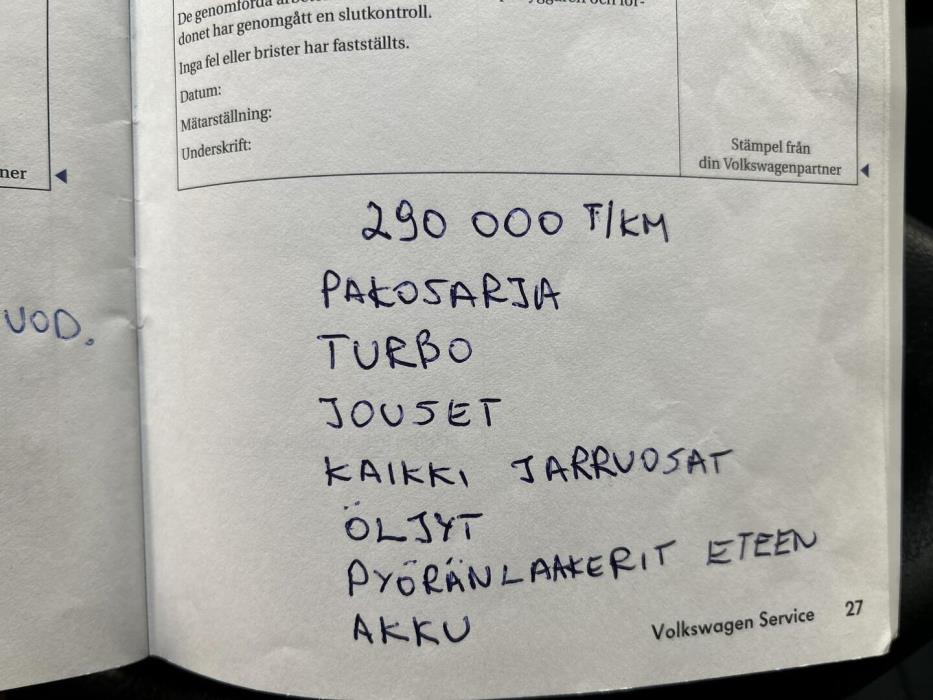 donet har genomgått en slutkontroll.
Inga fel eller brister har fastställts.
Datum:
Mätarställning:
Underskrift:
Stämpel från
din Volkswagenpartner
ner
290 000 T/KM
PAKOSARJA
UOD.
TURBO
JOUSET
KAIKKI JARRUOSAT
ÖLJYT
PYÖRÄNLAAKERIT ETEEN
AKKU
Volkswagen Service 27